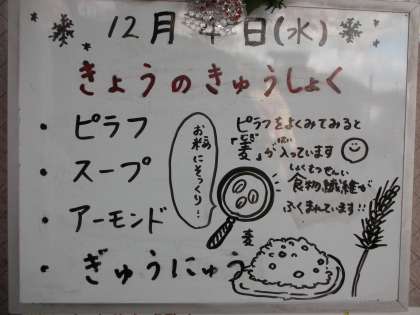 12月4日(水)
きょうのきゅうしょく
・ピラフ
・スープ
・アーモンド
・ぎゅうにゅう
お米にそっくり…
こめ
ピラフをよくみてみると
『麦』が入っています
むぎ
はい
しょくもつせんい
食物繊維が
ふくまれています!!
麦